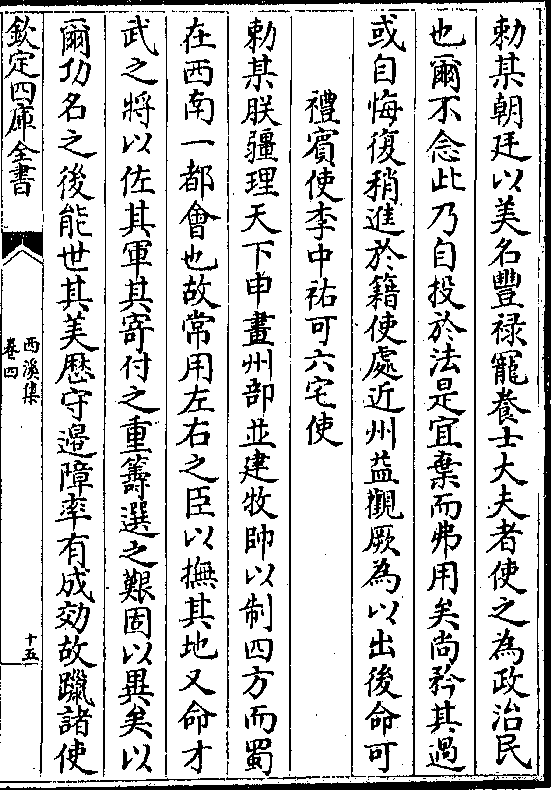 勅某朝廷以美名豐禄寵養士大夫者使之為政治民
也爾不念此乃自投於法是宜棄而弗用矣尚矜其過
或自悔復稍進於籍使處近州益觀厥為以出後命可
禮賓使李中祐可六宅使
勅某朕疆理天下申畫州部並建牧帥以制四方而蜀
在西南一都會也故常用左右之臣以撫其地又命才
武之將以佐其軍其寄付之重籌選之艱固以異矣以
爾功名之後能世其美歷守邉障率有成効故躐諸使
欽定四庫全書
西溪集
卷四
十五